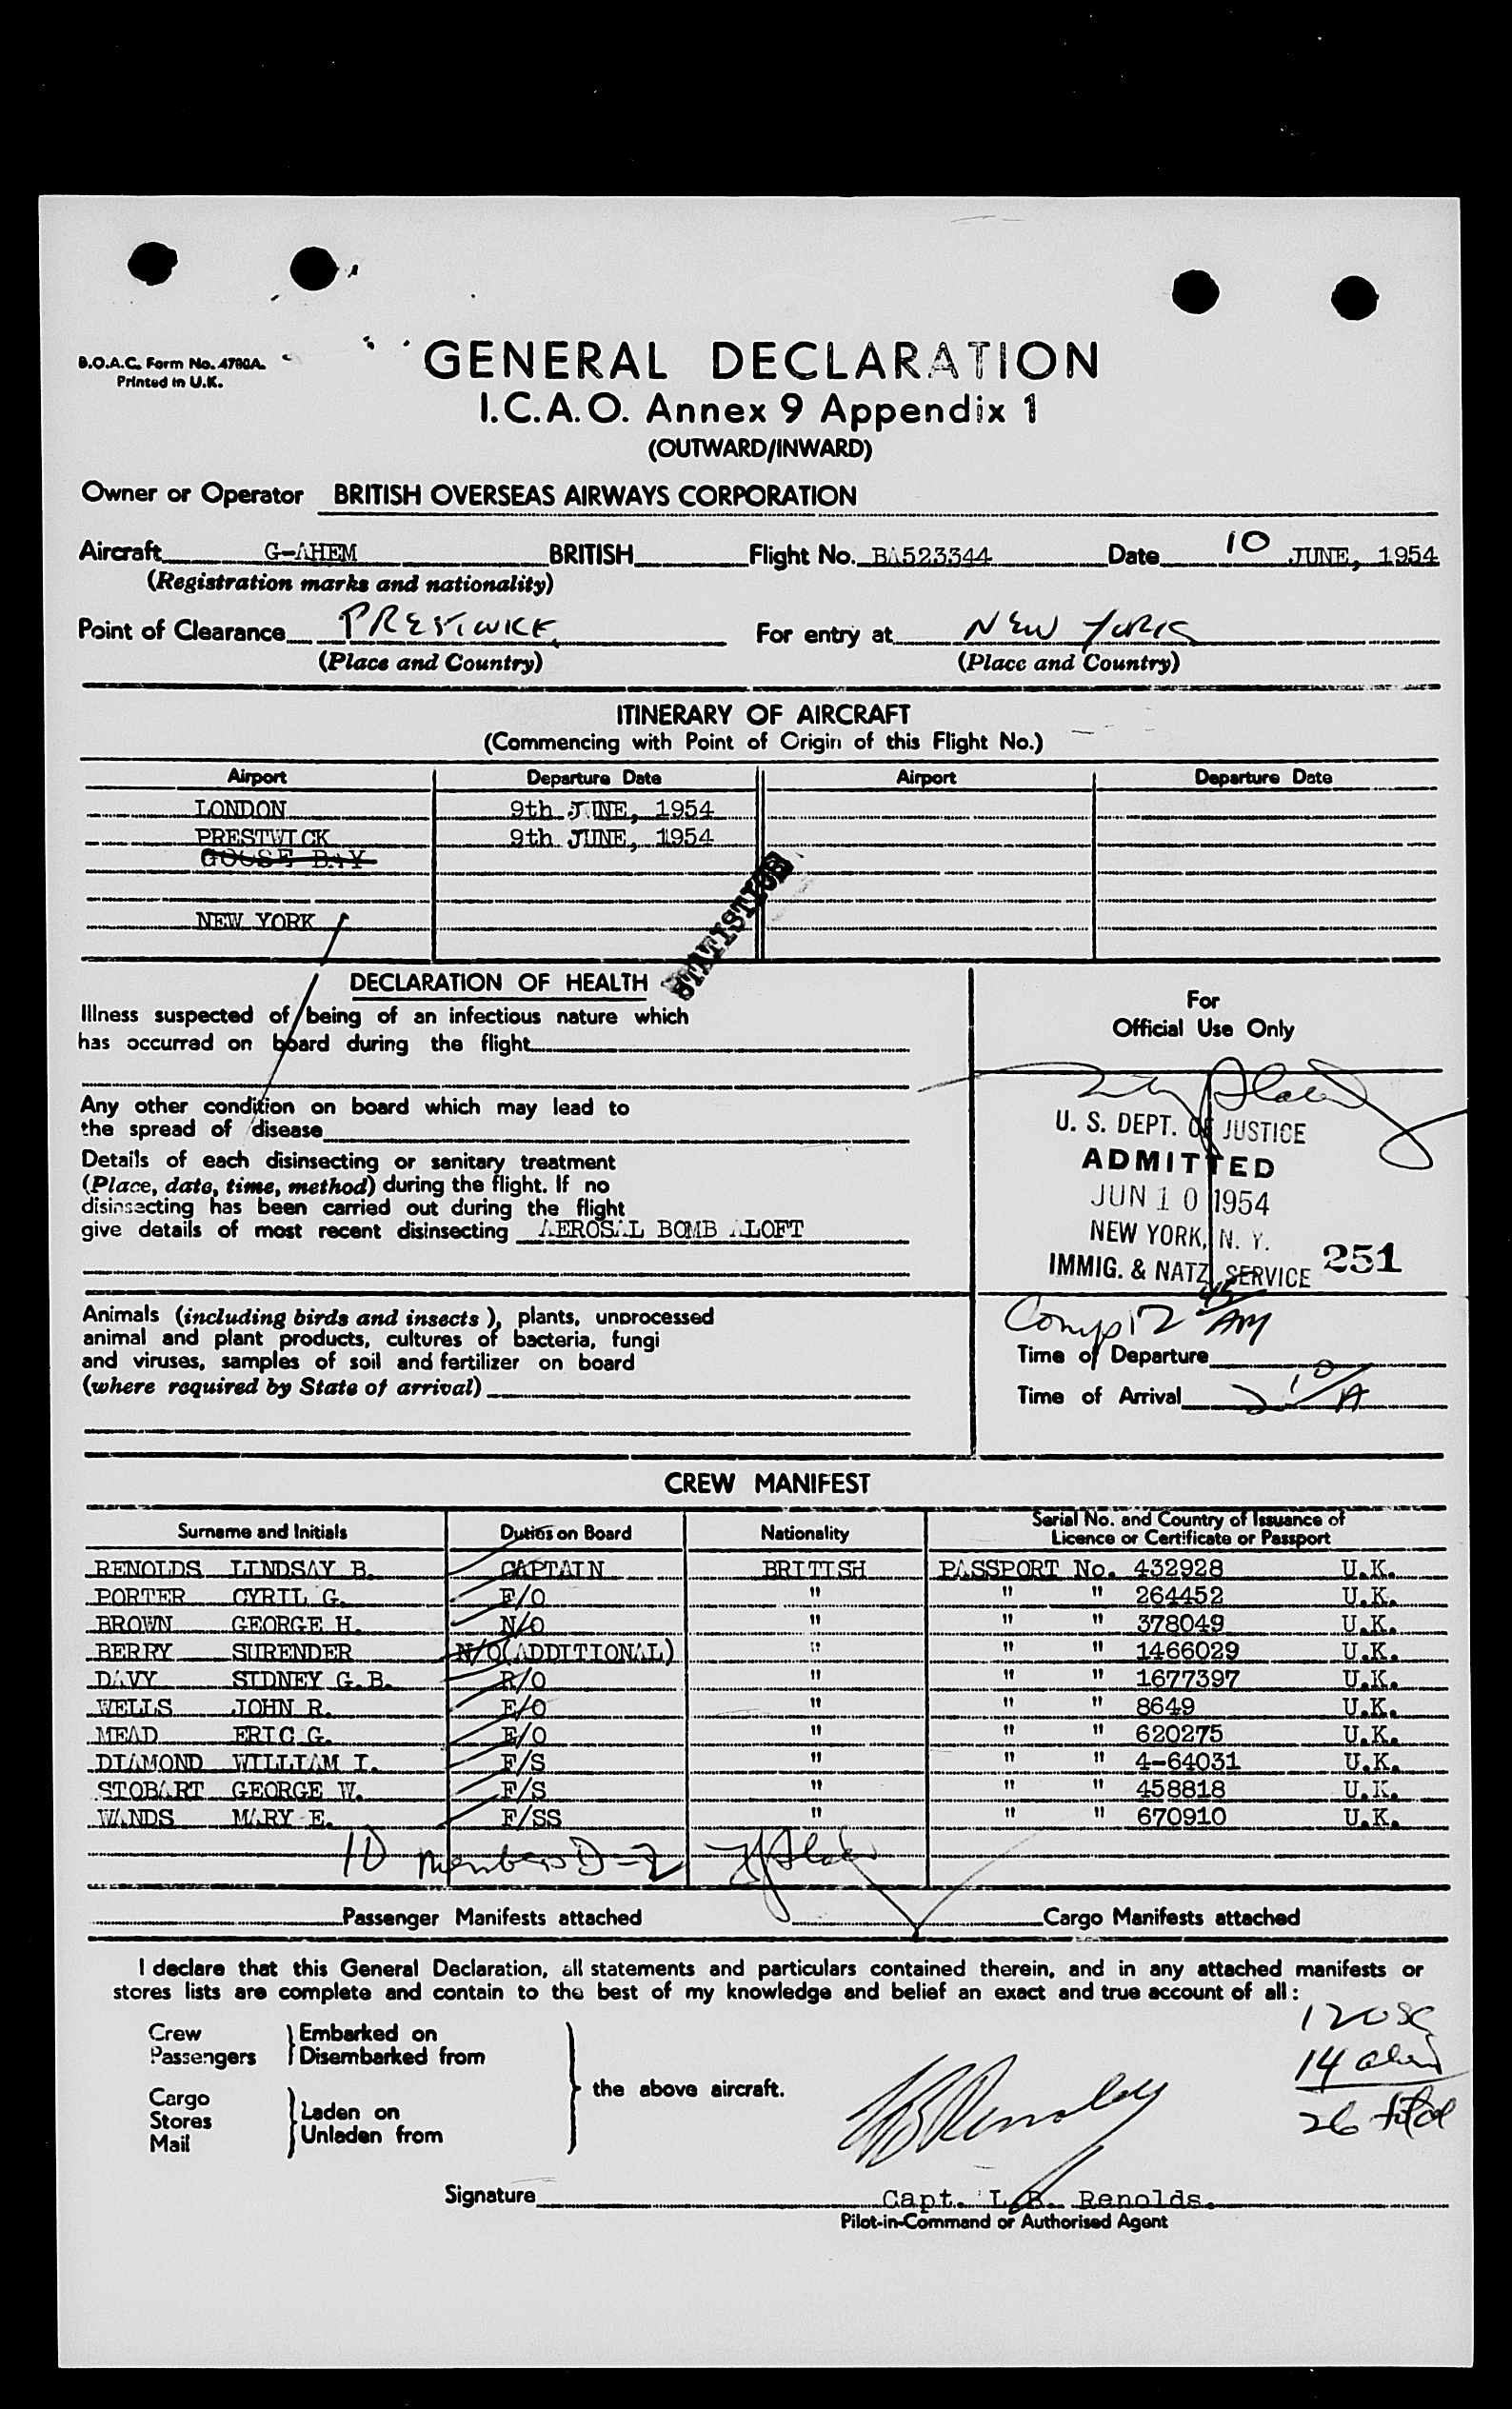 B.O.A.C. Form No. 4780A.
Printed in U.K.
GENERAL DECLARATION
I.C.A.O. Annex 9 Appendix 1
(OUTWARD/INWARD)
Owner or Operator BRITISH OVERSEAS AIRWAYS CORPORATION
Aircraft G-AHEM BRITISH Flight No. BA523344 Date 10 JUNE, 1954
(Registration marks and nationality)
Point of Clearance PRESTWICK For entry at NEW YORK
(Place and Country) (Place and Country)
ITINERARY OF AIRCRAFT
(Commencing with Point of Origin of this Flight No.)
Airport Departure Date Airport Departure Date
LONDON 9th JUNE, 1954
PRESTWICK 9th JUNE, 1954
GOOSE BAY
NEW YORK
STATISTICS
DECLARATION OF HEALTH
Illness suspected of being of an infectious nature which
has occurred on board during the flight
Any other condition on board which may lead to
the spread of disease
Details of each disinsecting or sanitary treatment
(Place, date, time, method) during the flight. If no
disinsecting has been carried out during the flight
give details of most recent disinsecting AEROSAL BOMB ALOFT
Animals (including birds and insects), plants, unprocessed
animal and plant products, cultures of bacteria, fungi
and viruses, samples of soil and fertilizer on board
(where required by State of arrival)
For
Official Use Only
U. S. DEPT. OF JUSTICE
ADMITTED
JUN 10 1954
NEW YORK, N. Y.
IMMIG. & NATZ. SERVICE 251
Comp 12 45 AM
Time of Departure
Time of Arrival 2 10/A
CREW MANIFEST
Surname and Initials Duties on Board Nationality Serial No. and Country of Issuance of
Licence or Certificate or Passport
RENOLDS LINDSAY B. CAPTAIN BRITISH PASSPORT No. 432928 U.K.
PORTER CYRIL G. F/O " " " 264452 U.K.
BROWN GEORGE H. N/O " " " 378049 U.K.
BERRY SURENDER N/O(ADDITIONAL) " " " 1466029 U.K.
DAVY SIDNEY G.B. R/O " " " 1677397 U.K.
WELLS JOHN R. E/O " " " 8649 U.K.
MEAD ERIC G. E/O " " " 620275 U.K.
DIAMOND WILLIAM I. F/S " " " 4-64031 U.K.
STOBART GEORGE W. F/S " " " 458818 U.K.
WANDS MARY E. F/SS " " " 670910 U.K.
10 members D-2
Passenger Manifests attached Cargo Manifests attached
I declare that this General Declaration, all statements and particulars contained therein, and in any attached manifests or
stores lists are complete and contain to the best of my knowledge and belief an exact and true account of all:
Crew
Passengers
Embarked on
Disembarked from
Cargo
Stores
Mail
Laden on
Unladen from
the above aircraft.
12 USC
14 alien
26 total
Signature Capt. L.B. Renolds.
Pilot-in-Command or Authorised Agent